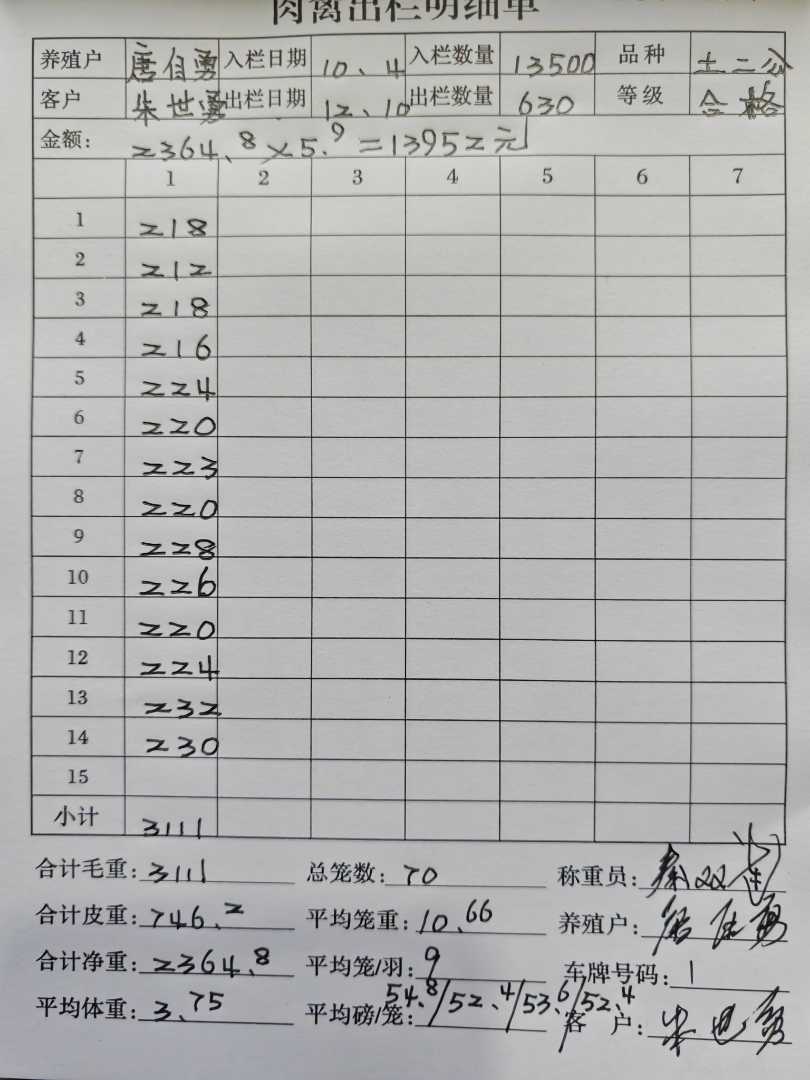 肉禽出栏明细单
养殖户 唐自勇 入栏日期 10、4 入栏数量 13500 品种 土二公
客户 朱世勇 出栏日期 12、10 出栏数量 630 等级 合格
金额: 2364.8×5.9=13952元
1 2 3 4 5 6 7
1 218
2 212
3 218
4 216
5 224
6 220
7 223
8 220
9 228
10 226
11 220
12 224
13 232
14 230
15
小计 3111
合计毛重: 3111 总笼数: 70 称重员:
合计皮重: 746.2 平均笼重: 10.66 养殖户:
合计净重: 2364.8 平均笼/羽: 9 车牌号码: 1
平均体重: 3.75 平均磅/笼: 54.8/52.4/53.6/52.4 客户: 朱世勇